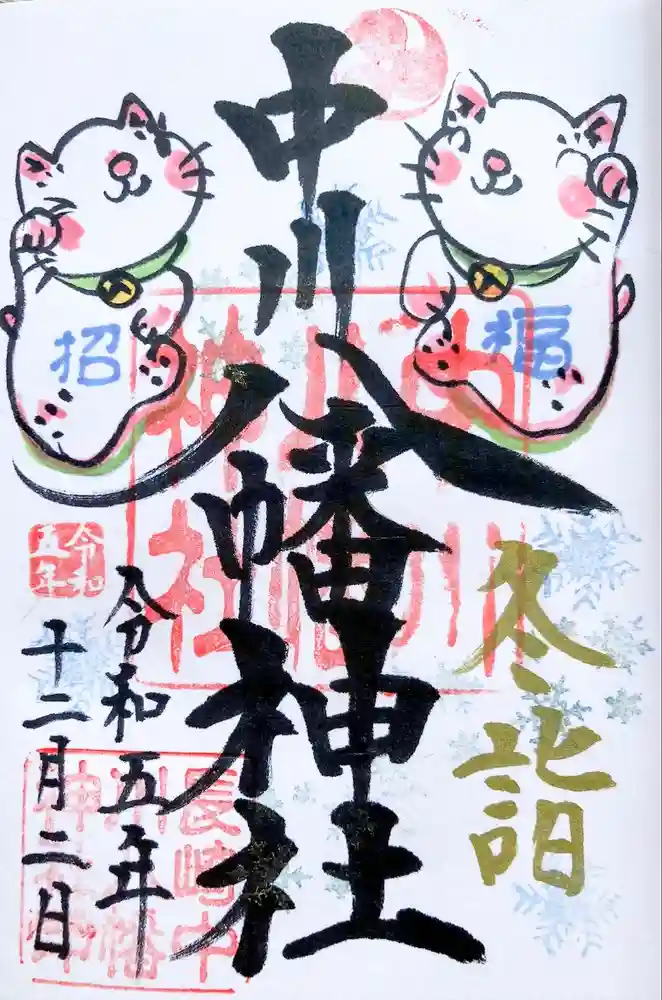 冬詣
中川八幡神社
令和五年
十二月二日
招
福
令和
五年
中川
八幡
神社
長崎中
川八幡